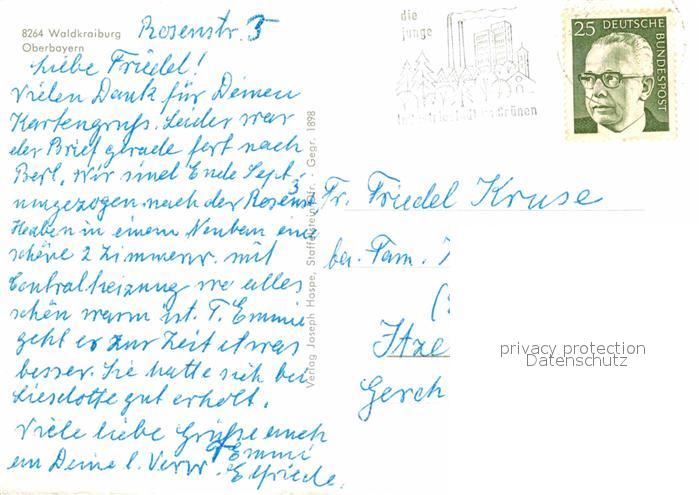 8264 Waldkraiburg
Oberbayern
Rosenstr. 5
Liebe Friedel!
Vielen Dank für Deinen
Kartengruß. Leider war
der Brief gerade fort nach
Berl. Wir sind Ende Sept.
umgezogen nach der Rosenst
3
Haben in einem Neubau eine
schöne 2 Zimmerw. mit
Centralheizung wo alles
schön warm ist. T. Emmie
geht es zur Zeit etwas
besser. Sie hatte sich bei
Lieslotte gut erholt.
Viele liebe Grüße auch
an Deine l. Verw. T. Emmi
Elfriede.
Verlag Joseph Haspe, Staffelstein/Ofr. · Gegr. 1898
die
junge
Industriestadt im Grünen
25 DEUTSCHE
BUNDESPOST
Fr. Friedel Kruse
bei Fam.
Itze
Gerch
privacy protection
Datenschutz